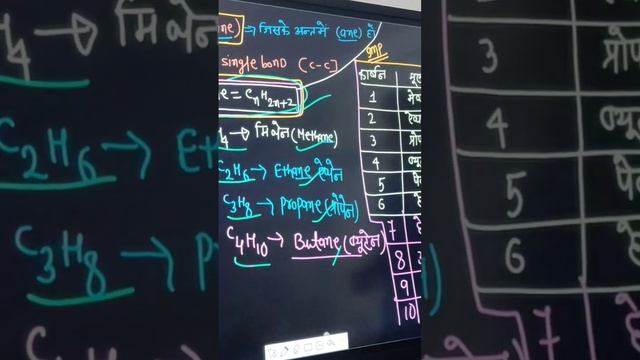 ne) → जिसके अन्त में (ane) हो
single bond [C-C]
e = CnH2n+2
4 → मिथेन (Methane)
C2H6 → Ethane एथेन
C3H8 → Propane (प्रोपेन)
C4H10 → Butane (ब्यूटेन)
gmp
कार्बन
1
2
3
4
5
6
7
8
9
10
4 → मि
C2H6 → Eth
C3H8 → Pr
3
4
5
6
7